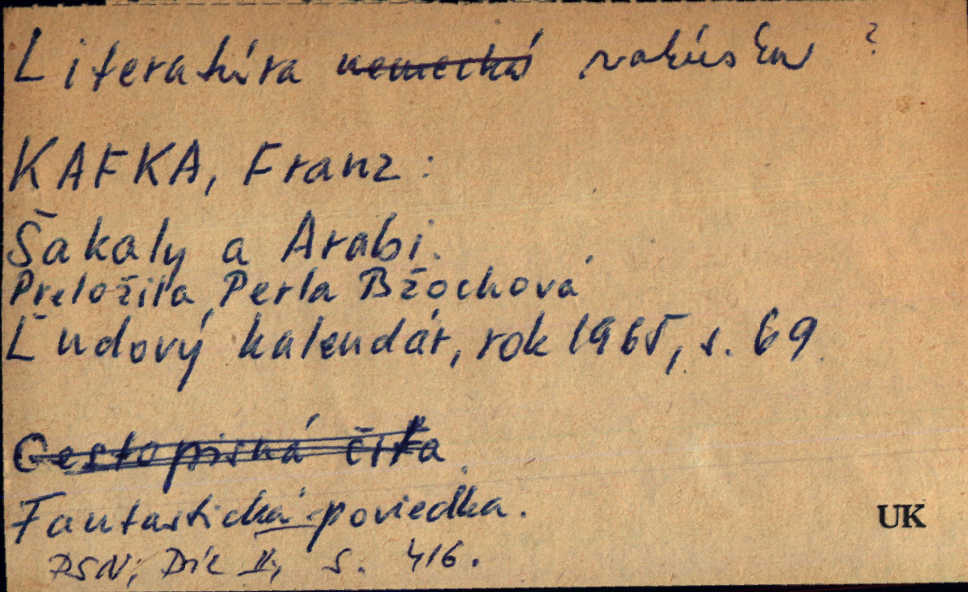 Literatúra nemecká rakúska ?
KAFKA, Franz:
Šakaly a Arabi.
Preložila Perla Bžochová
Ľudový kalendár, rok 1965, s. 69
Cestopisná črta
Fantastická poviedka.
UK
PSN, Die II, s. 416.